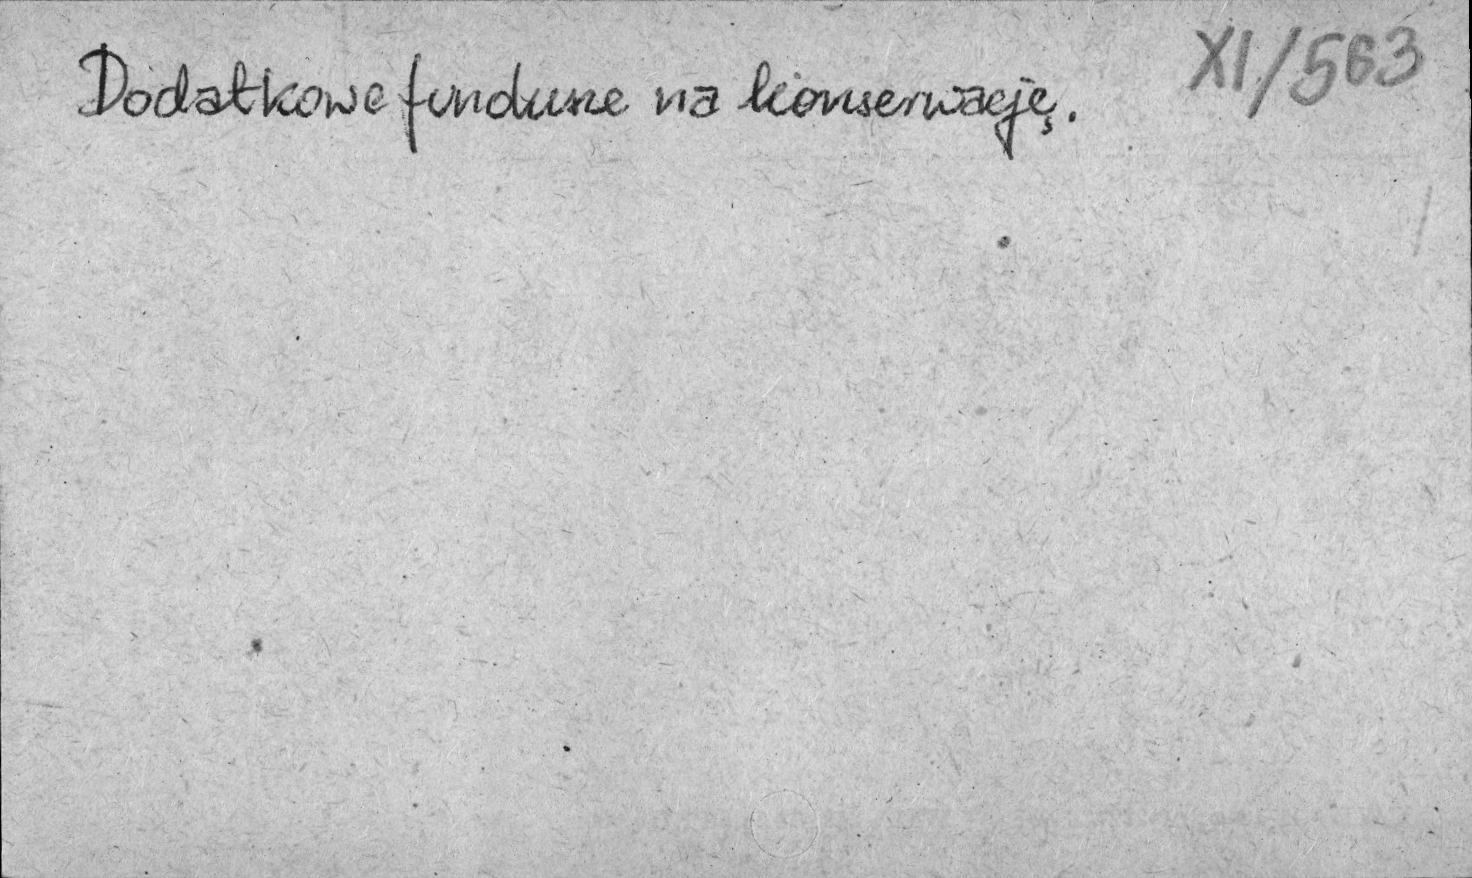 Dodatkowe fundusze na konserwację.
XI/563